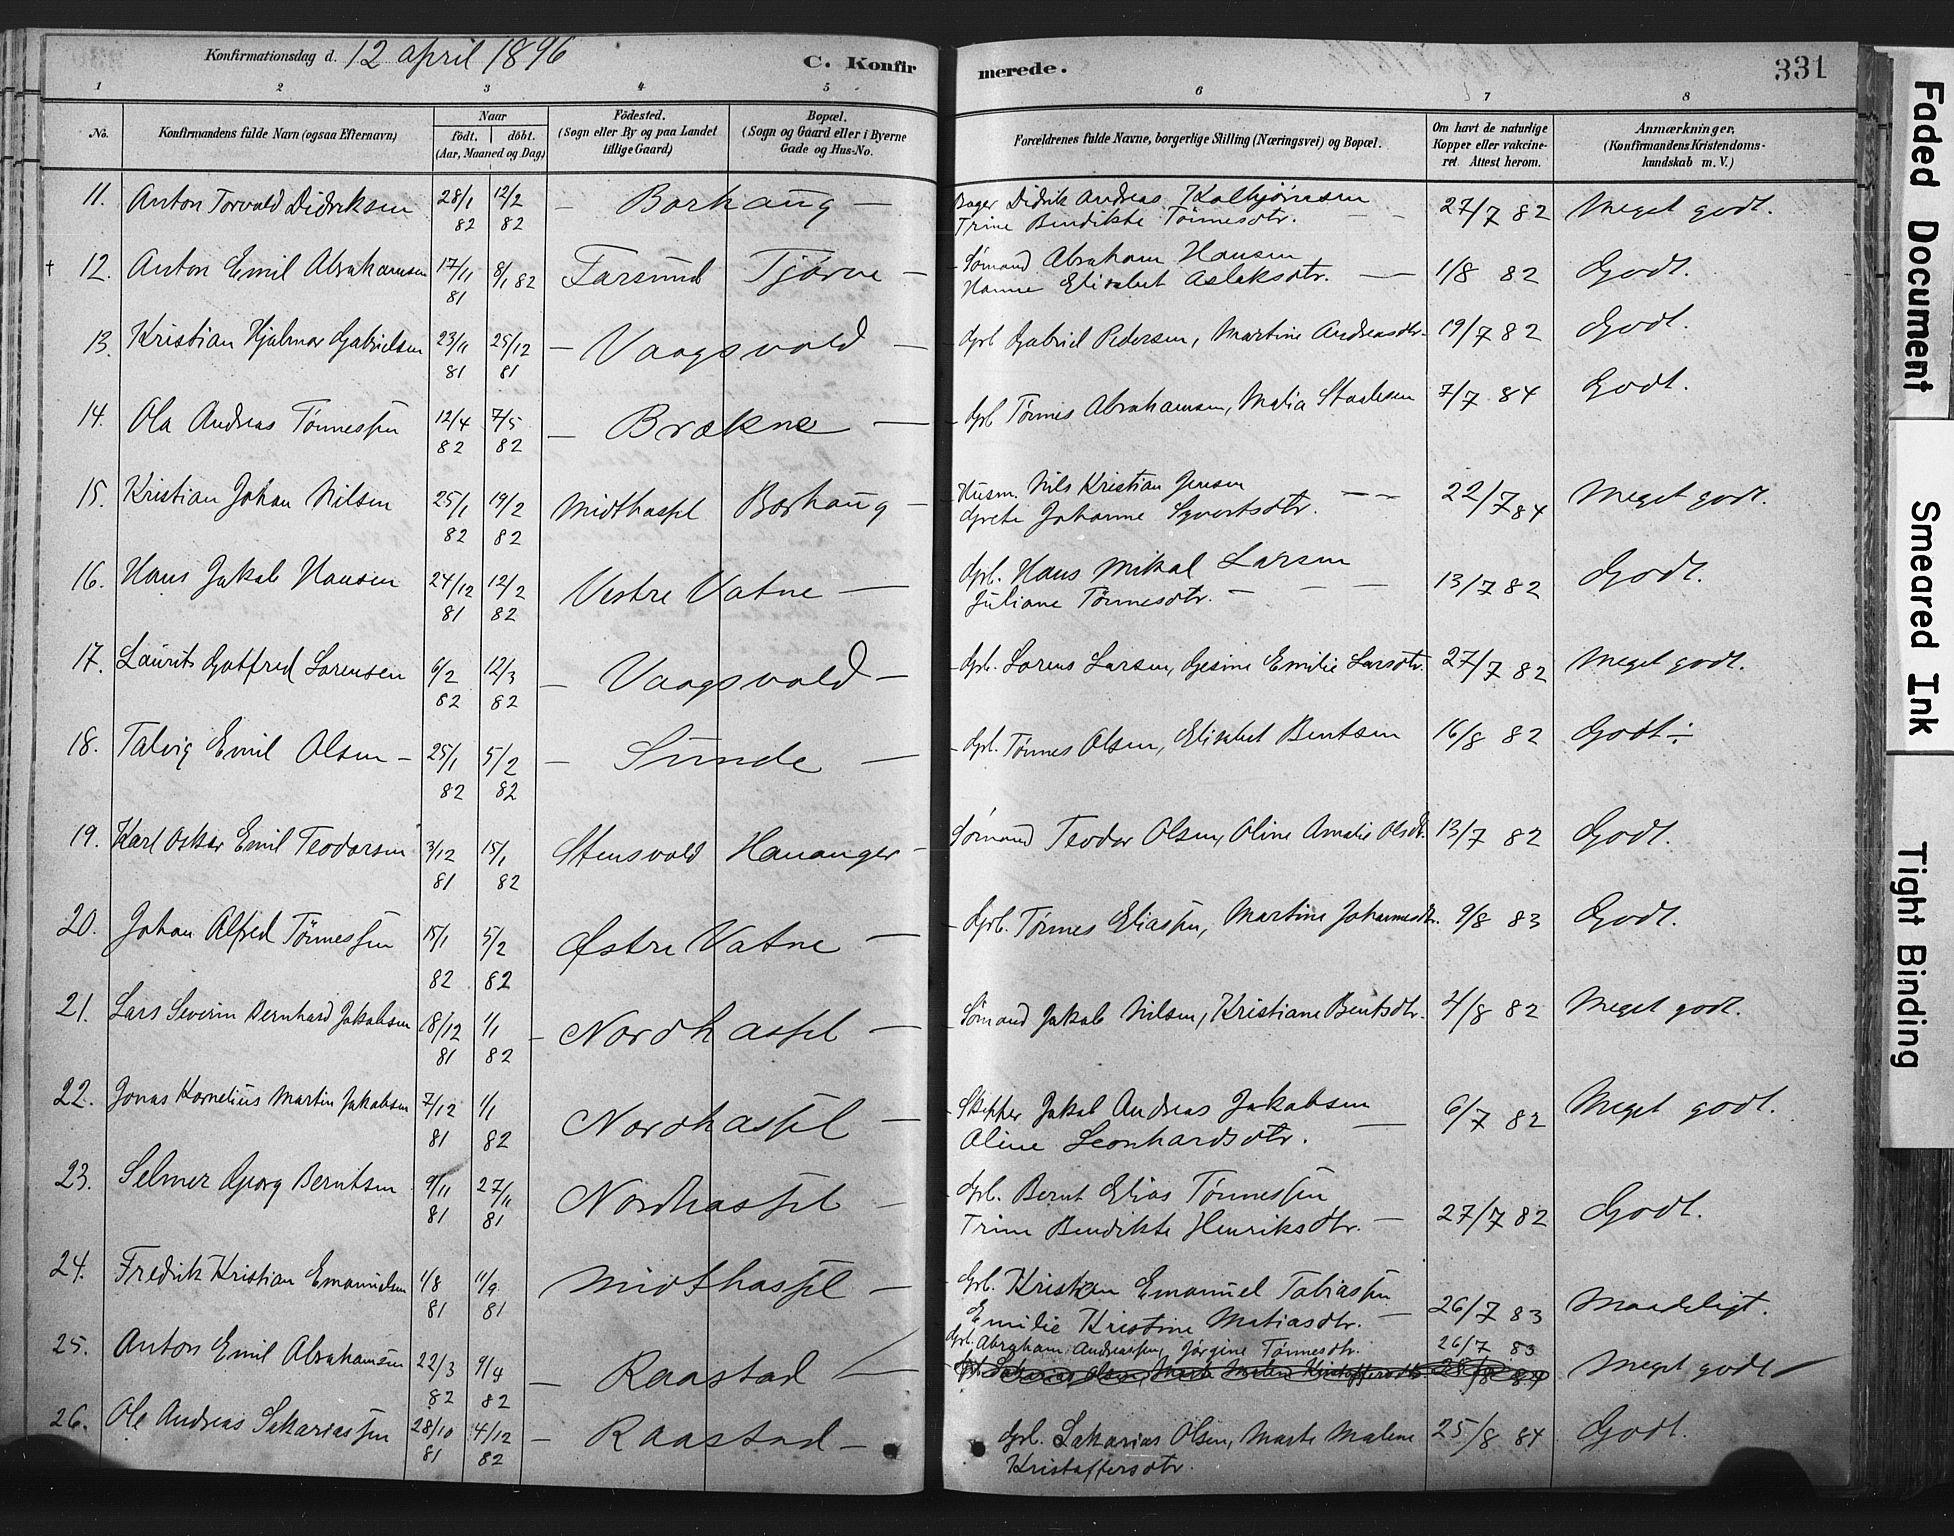 Konfirmationsdag d. 12 april 1896
C. Konfirmerede.
331
1 2 3 4 5 6 7 8
No.
Konfirmandens fulde Navn (ogsaa Efternavn)
Naar
født. døbt.
(Aar, Maaned og Dag)
Fødested.
(Sogn eller By og paa Landet tillige Gaard)
Bopæl.
(Sogn og Gaard eller i Byerne Gade og Hus-No.
Forældrenes fulde Navne, borgerlige Stilling (Næringsvei) og Bopæl.
Om havt de naturlige Kopper eller vakcineret. Attest herom.
Anmærkninger.
(Konfirmandens Kristendomskundskab m. V.)
11. Anton Torvald Didriksen 28/1 82 12/2 82 – Borhaug – Didrik Andreas Kolbjørnsen 27/7 82 Meget godt.
Trine Bendikte Tønnesdtr. – –
+ 12. Anton Emil Abrahamsen 17/11 81 8/1 82 Farsund Tjørve – Sømand Abraham Hansen 1/8 82 Godt.
Hanne Elisabet Aslaksdtr. –
13. Kristian Hjalmar Gabrielsen 23/11 81 25/12 81 – Vaagsvold – Grb Gabriel Pedersen, Martine Andreasdtr. 19/7 82 Godt.
14. Ola Andreas Tønnessen 12/4 82 7/5 82 – Brækne – Grb Tønnes Abrahamsen, Malia Staalesen 7/7 84 Godt.
15. Kristian Johan Nilsen 25/1 82 19/2 82 Midthassel Borhaug – Husm. Nils Kristian Jensen – – 22/7 84 Meget godt.
Grete Johanne Syvertsdtr.
16. Hans Jakob Hansen 24/12 81 12/2 82 Vestre Vatne – Grb. Hans Mikal Larsen 13/7 82 Godt.
Juliane Tønnesdtr. – – –
17. Laurits Gotfred Lorensen 6/2 82 12/3 82 – Vaagsvold – Grb. Lorens Larsen, Gesine Emilie Larsdtr. 27/7 82 Meget godt.
18. Talvig Emil Olsen – 25/1 82 5/2 82 – Sunde – Grb. Tønnes Olsen, Elisabet Bentsen 16/8 82 Godt ÷
19. Karl Oskar Emil Teodorsen 3/12 81 15/1 82 Stensvold Hananger – Sømand Teodor Olsen, Oline Amalie Olsdtr. 13/7 82 Godt.
20. Johan Alfred Tønnessen 15/1 82 5/2 82 Østre Vatne – Grb. Tønnes Eliassen, Martine Johannesdtr. 9/8 83 Godt.
21. Lars Severin Bernhard Jakobsen 18/12 81 1/1 82 – Nordhassel – Sømand Jakob Nilsen, Kristiane Bentsdtr. 4/8 82 Meget godt.
22. Jonas Kornelius Martin Jakobsen 7/12 81 1/1 82 Nordhassel – Skipper Jakob Andreas Jakobsen 6/7 82 Meget godt.
Oline Leonhardsdtr. –
23. Selmer Georg Berntsen 9/11 81 27/11 81 Nordhassel – Grb. Bernt Elias Tønnessen 27/7 82 Godt.
Trine Bendikte Henriksdtr. –
24. Fredrik Kristian Emanuelsen 1/8 81 11/9 81 Midthassel – Grb. Kristian Emanuel Tobiassen 26/7 83 Maadeligt.
Emilie Kristine Matiasdtr. –
25. Anton Emil Abrahamsen 22/3 82 9/4 82 – Raastad – Grb. Abraham Andreassen, Jørgine Tønnesdtr. 26/7 83 Meget godt
26. Ole Andreas Sakariassen 28/10 81 4/12 82 – Raastad – Grb. Sakarias Olsen, Marte Malene 25/8 84 Godt.
Kristoffersdtr.
Faded Document
Smeared Ink
Tight Binding